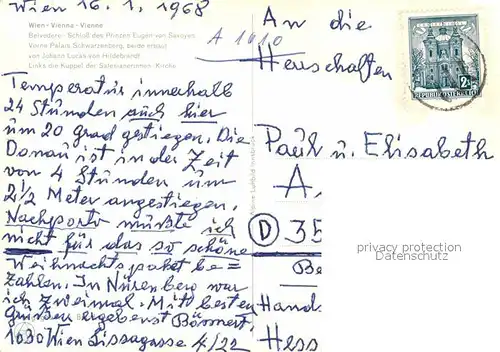 Wien 16. 1. 1968
Wien - Vienna - Vienne
Belvedere - Schloß des Prinzen Eugen von Savoyen
Vorne Palais Schwarzenberg, beide erbaut
von Johann Lucas von Hildebrandt
Links die Kuppel der Salesianerinnen-Kirche
A 1010
Temperatur innerhalb
24 Stunden auch hier
um 20 grad gestiegen. Die
Donau ist in der Zeit
von 4 Stunden um
2 1/2 Meter angestiegen.
Nachporto mußte ich
nicht für das so schöne
Weihnachtspaket be=
zahlen. In Nürenberg war
ich zweimal. Mit besten
Grüßen ergebenst
1030 Wien Lissagasse 4/22
An die
Herrschaften
Paul u. Elisabeth
A.
D 35
privacy protection
Datenschutz
Be
Hand.
Hess
2S
REPUBLIK ÖSTERREICH